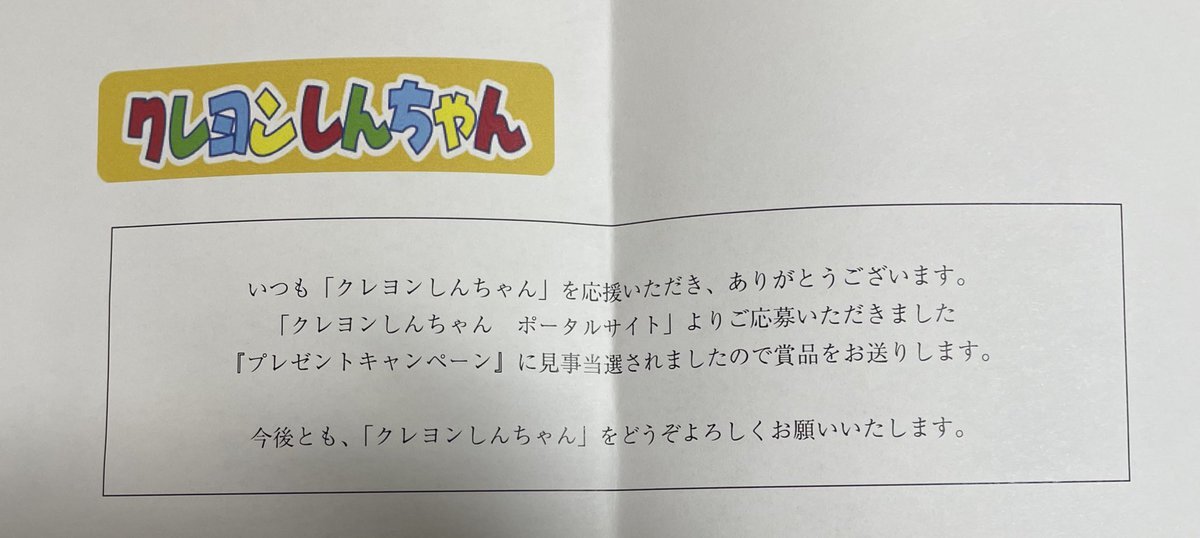 クレヨンしんちゃん
いつも「クレヨンしんちゃん」を応援いただき、ありがとうございます。
「クレヨンしんちゃん　ポータルサイト」よりご応募いただきました
『プレゼントキャンペーン』に見事当選されましたので賞品をお送りします。
今後とも、「クレヨンしんちゃん」をどうぞよろしくお願いいたします。